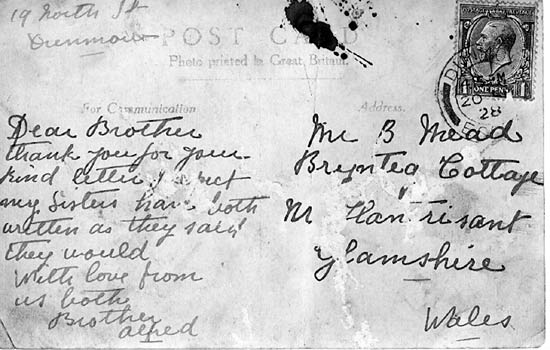 19 North St
POST CARD
Photo printed in Great Britain.
For Communication
Address.
ONE PENNY
20
28
Dear Brother
thank you for your
kind letter
my Sisters have both
written as they said
they would
With love from
us both
Brother
alfred
Mr B Mead
Brynteg Cottage
Nr Llantrisant
Glamshire
Wales